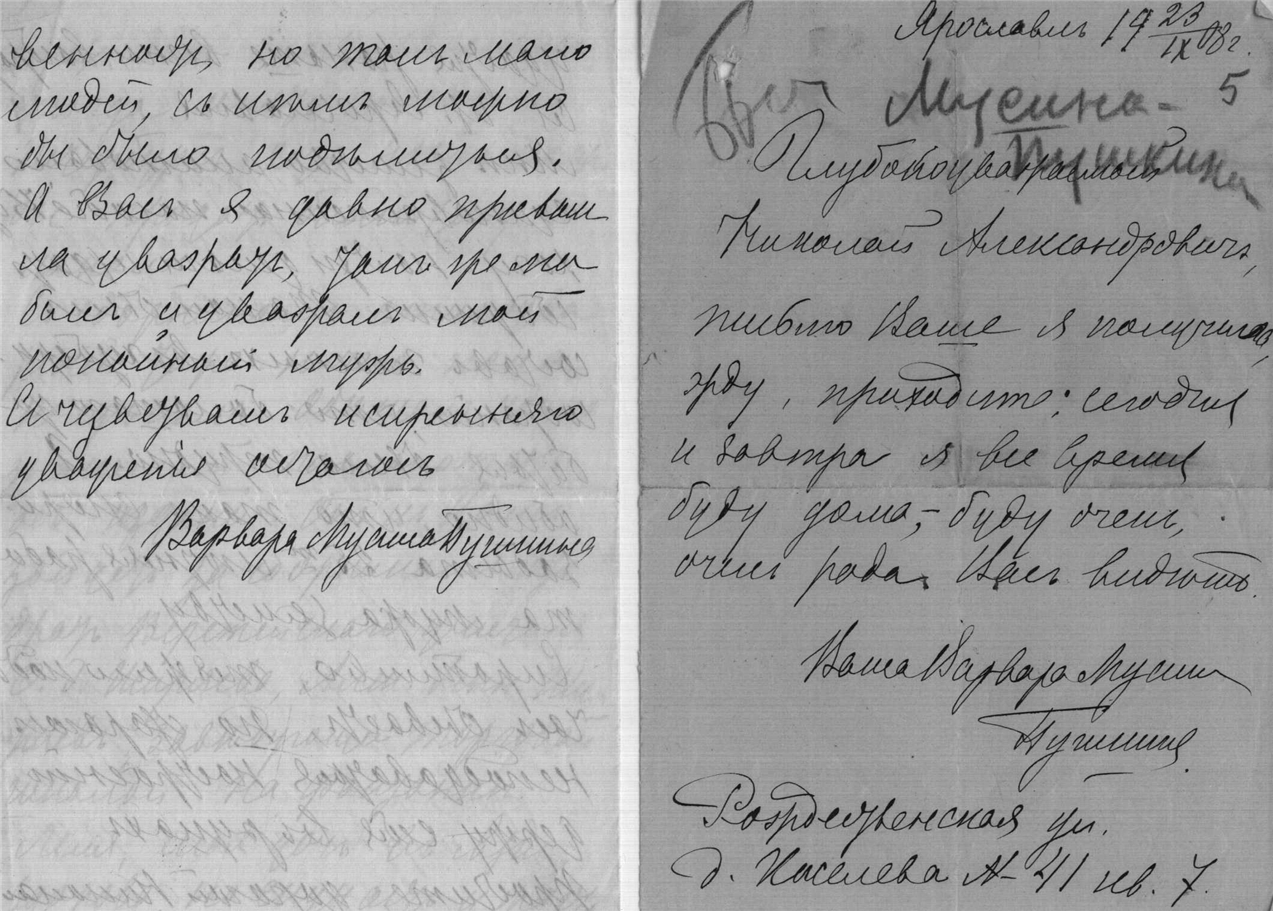 венной, но там мало
людей, съ кѣмъ можно
бы было подѣлиться.
А Васъ я давно привык
ла уважать, такъ же лю
билъ и уважалъ мой
покойный мужъ.
Съ чувствомъ искренняго
уваженія остаюсь
Варвара Мусина Пушкина
Ярославль 19 23/IX 08 г.
5
Мусина-
Пушкина
Глубокоуважаемый
Николай Александровичъ,
письмо Ваше я получила,
жду, приходите: сегодня
и завтра я все время
буду дома, – буду очень,
очень рада Васъ видѣть.
Ваша Варвара Мусина
Пушкина
Рождественская ул.
д. Киселева № 41 кв. 7.